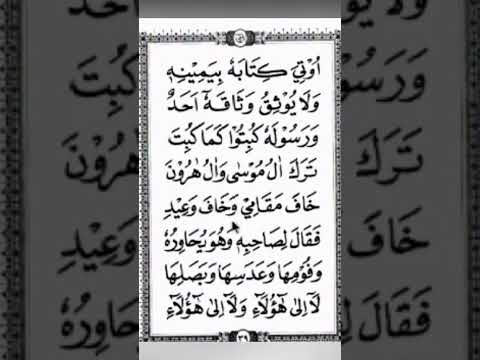 اُوْتِيَ كِتَابَهٗ بِيَمِيْنِهٖ
وَلَا يُوْثِقُ وَثَاقَهٗٓ اَحَدٌ
وَرَسُوْلَهٗ كُبِتُوْا كَمَا كُبِتَ
تَرَكَ اٰلُ مُوْسٰى وَاٰلُ هٰرُوْنَ
خَافَ مَقَامِيْ وَخَافَ وَعِيْدِ
فَقَالَ لِصَاحِبِهٖ وَهُوَ يُحَاوِرُهٗٓ
وَفُوْمِهَا وَعَدَسِهَا وَبَصَلِهَا
لَآ اِلٰى هٰٓؤُلَآءِ وَلَآ اِلٰى هٰٓؤُلَآءِ
٣٩